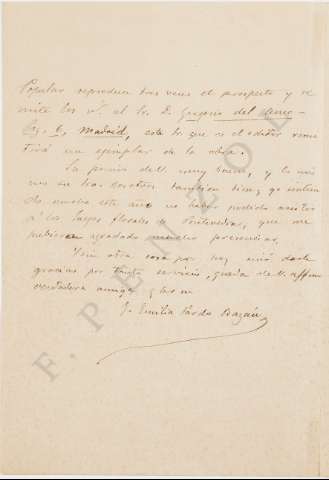 Popular reproduce dos veces el prospecto y re-
mite los nº al Sr. D. Gregorio del Amo-
6, Madrid, este lo que es el editor remi-
tirá un ejemplar de la obra.
La poesía de V. muy buena, y la
mis
también bien; yo sintien-
do mucho este año no haber podido asistir
á los Juegos Florales de Pontevedra, que me
hubieran agradado mucho presenciar.
Y sin otra cosa por hoy sinó darle
gracias por tanto servicio, queda de V. affma
verdadera amiga y
Emilia Pardo Bazán
F. PENZOL